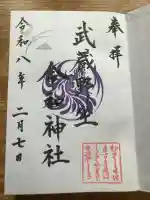 奉拝
武蔵野坐
令和神社
令和八年 二月七日